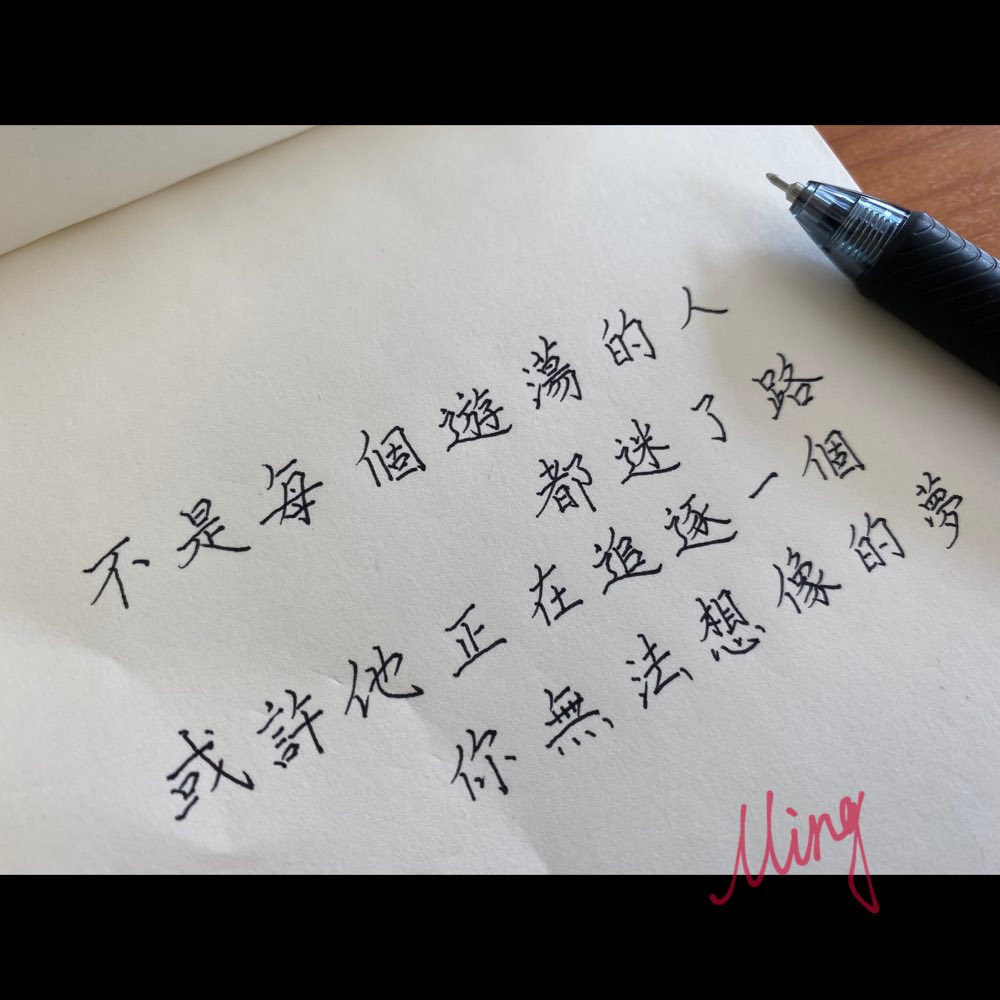 不是每個遊蕩的人
都迷了路
或許他正在追逐一個
你無法想像的夢
Ming